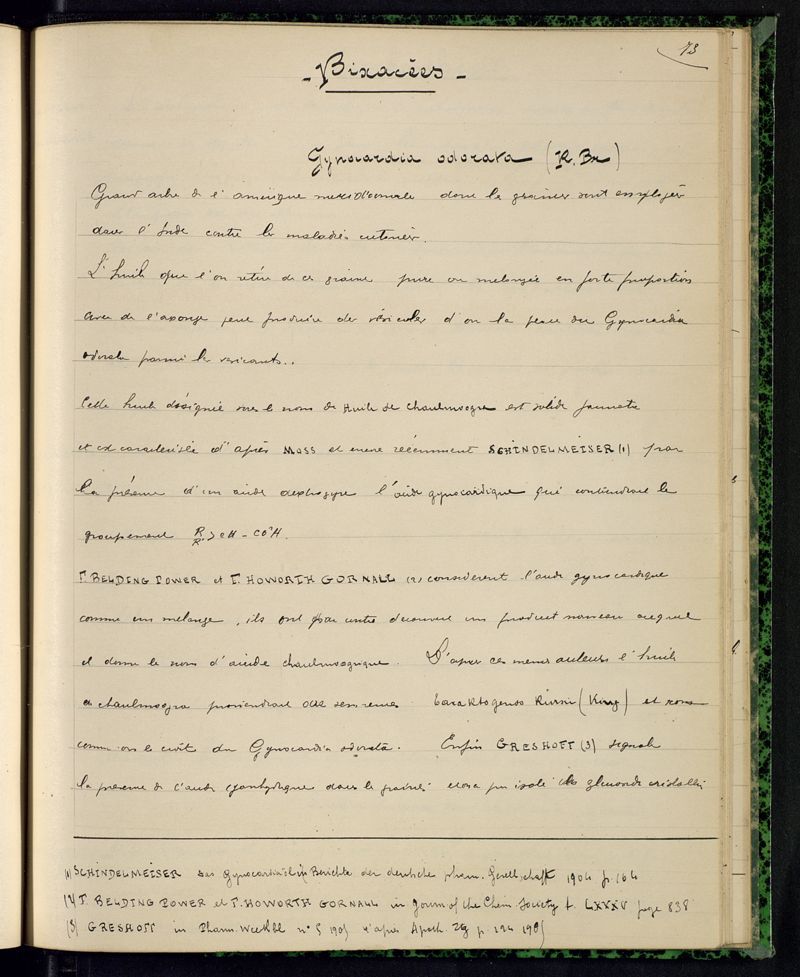 73
- Bixacées -
Gynocardia odorata (R. Br)
Grand arbre de l'amérique meridionale dont les graines sont employées
dans l'Inde contre les maladies cutanées.
L'huile que l'on retire de ces graines pure ou mélangée en forte proportion
avec de l'axonge peut produire des vésicules d'où la place du Gynocardia
odorata parmi les vesicants..
Cette huile désignée sous le nom de Huile de chaulmoogra est solide jaunatre
et est caracterisée d'après MOSS et encore récemment SCHINDELMEISER (1) par
la présence d'un acide dextrogyre l'acide gynocardique qui contiendrait le
groupement R/R' > CH - CO²H.
F. BELDING POWER et F. HOWORTH GORNALL (2) considèrent l'acide gynocardique
comme un mélange, ils ont par contre découvert un produit nouveau auquel
ils donne le nom d'acide chaulmoogrique. D'apres ces memes auteurs l'huile
de chaulmoogra proviendrait des semences Taraktogenos Kurzii (King) et non
comme on le croit du Gynocardia odorata. Enfin GRESHOFF (3) signale
la présence de l'acide cyanhydrique dans les graines et on a pu isolé un glucoside cristallisé
(1) SCHINDELMEISER das Gynocardiaöl in Berichte der deutsche pharm. Gesellschaft 1904 p. 164
(2) F. BELDING POWER et F. HOWORTH GORNALL in Journ of the Chem. Society t. LXXXV page 838
(3) GRESHOFF in Pharm. Weekbl n° 5 1905 d'après Apoth. Ztg p. 124 1905